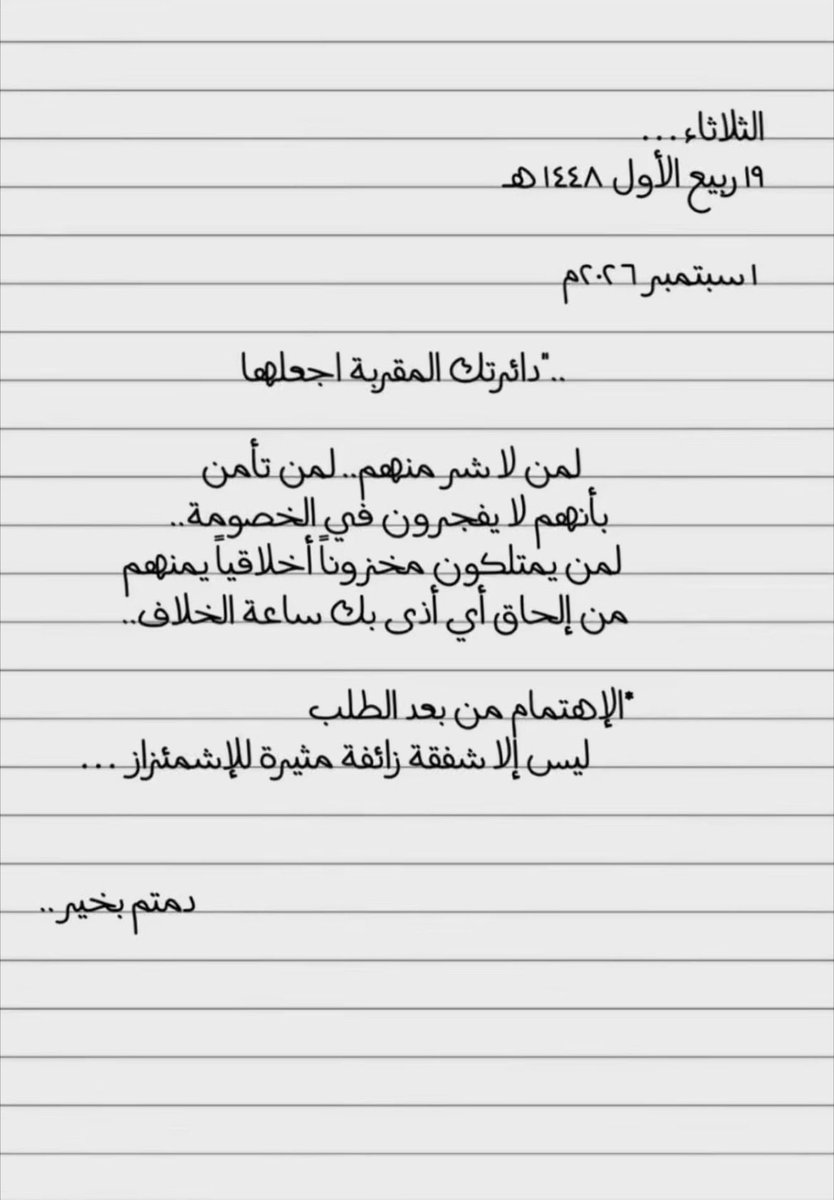 الثلاثاء...
١٩ ربيع الأول ١٤٤٨هـ
١ سبتمبر ٢٠٢٦م
.."دائرتك المقربة اجعلها
لمن لا شر منهم.. لمن تأمن
بأنهم لا يفجرون في الخصومة..
لمن يمتلكون مخزوناً أخلاقياً يمنهم
من إلحاق أي أذى بك ساعة الخلاف..
"الإهتمام من بعد الطلب
ليس إلا شفقة زائفة مثيرة للإشمئزاز ...
دمتم بخير..